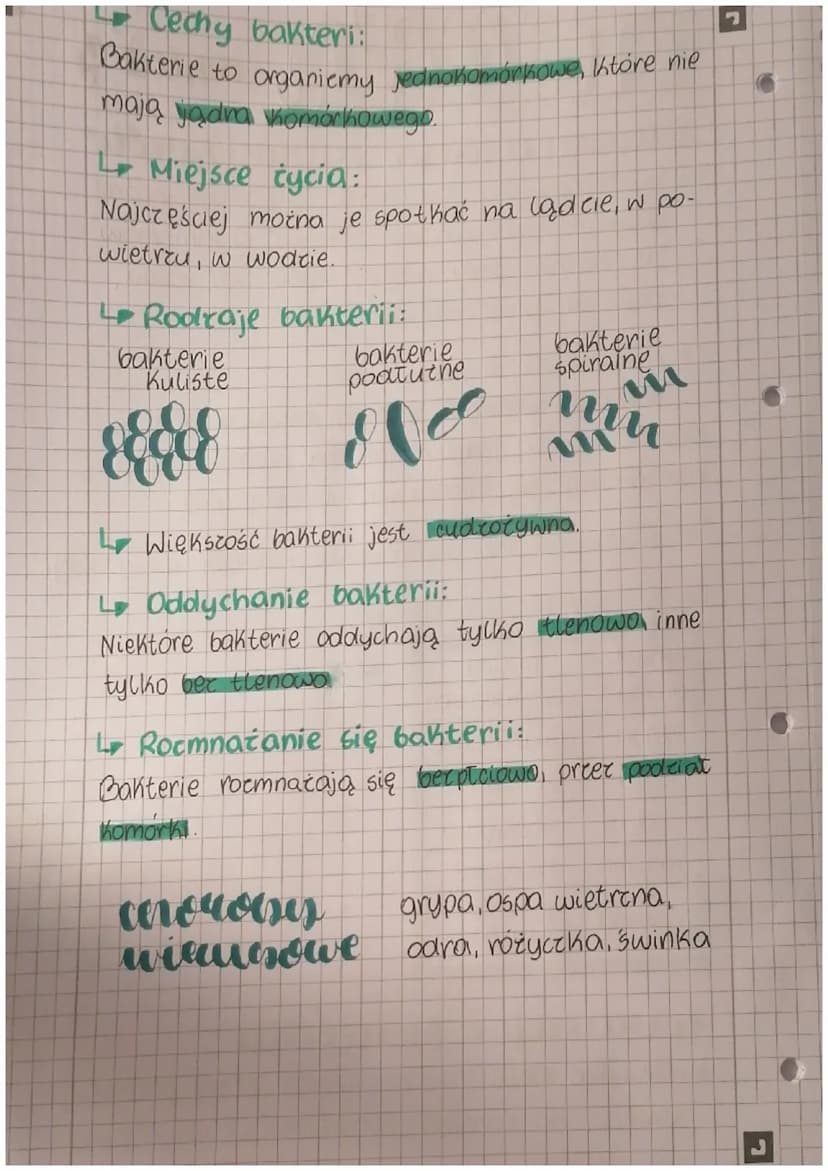 ↳ Cechy bakteri:
Bakterie to organizmy jednokomórkowe, które nie
mają jądra komórkowego.
↳ Miejsce życia:
Najczęściej można je spotkać na lądzie, w po-
wietrzu, w wodzie.
↳ Rodzaje bakterii:
bakterie kuliste
bakterie podłużne
bakterie spiralne
↳ Większość bakterii jest cudzożywna.
↳ Oddychanie bakterii:
Niektóre bakterie oddychają tylko tlenowo, inne
tylko bez tlenowo
↳ Rozmnażanie się bakterii:
Bakterie rozmnażają się bezpłciowo, przez podział
komórki.
choroby wirusowe
grypa, ospa wietrzna,
odra, różyczka, świnka